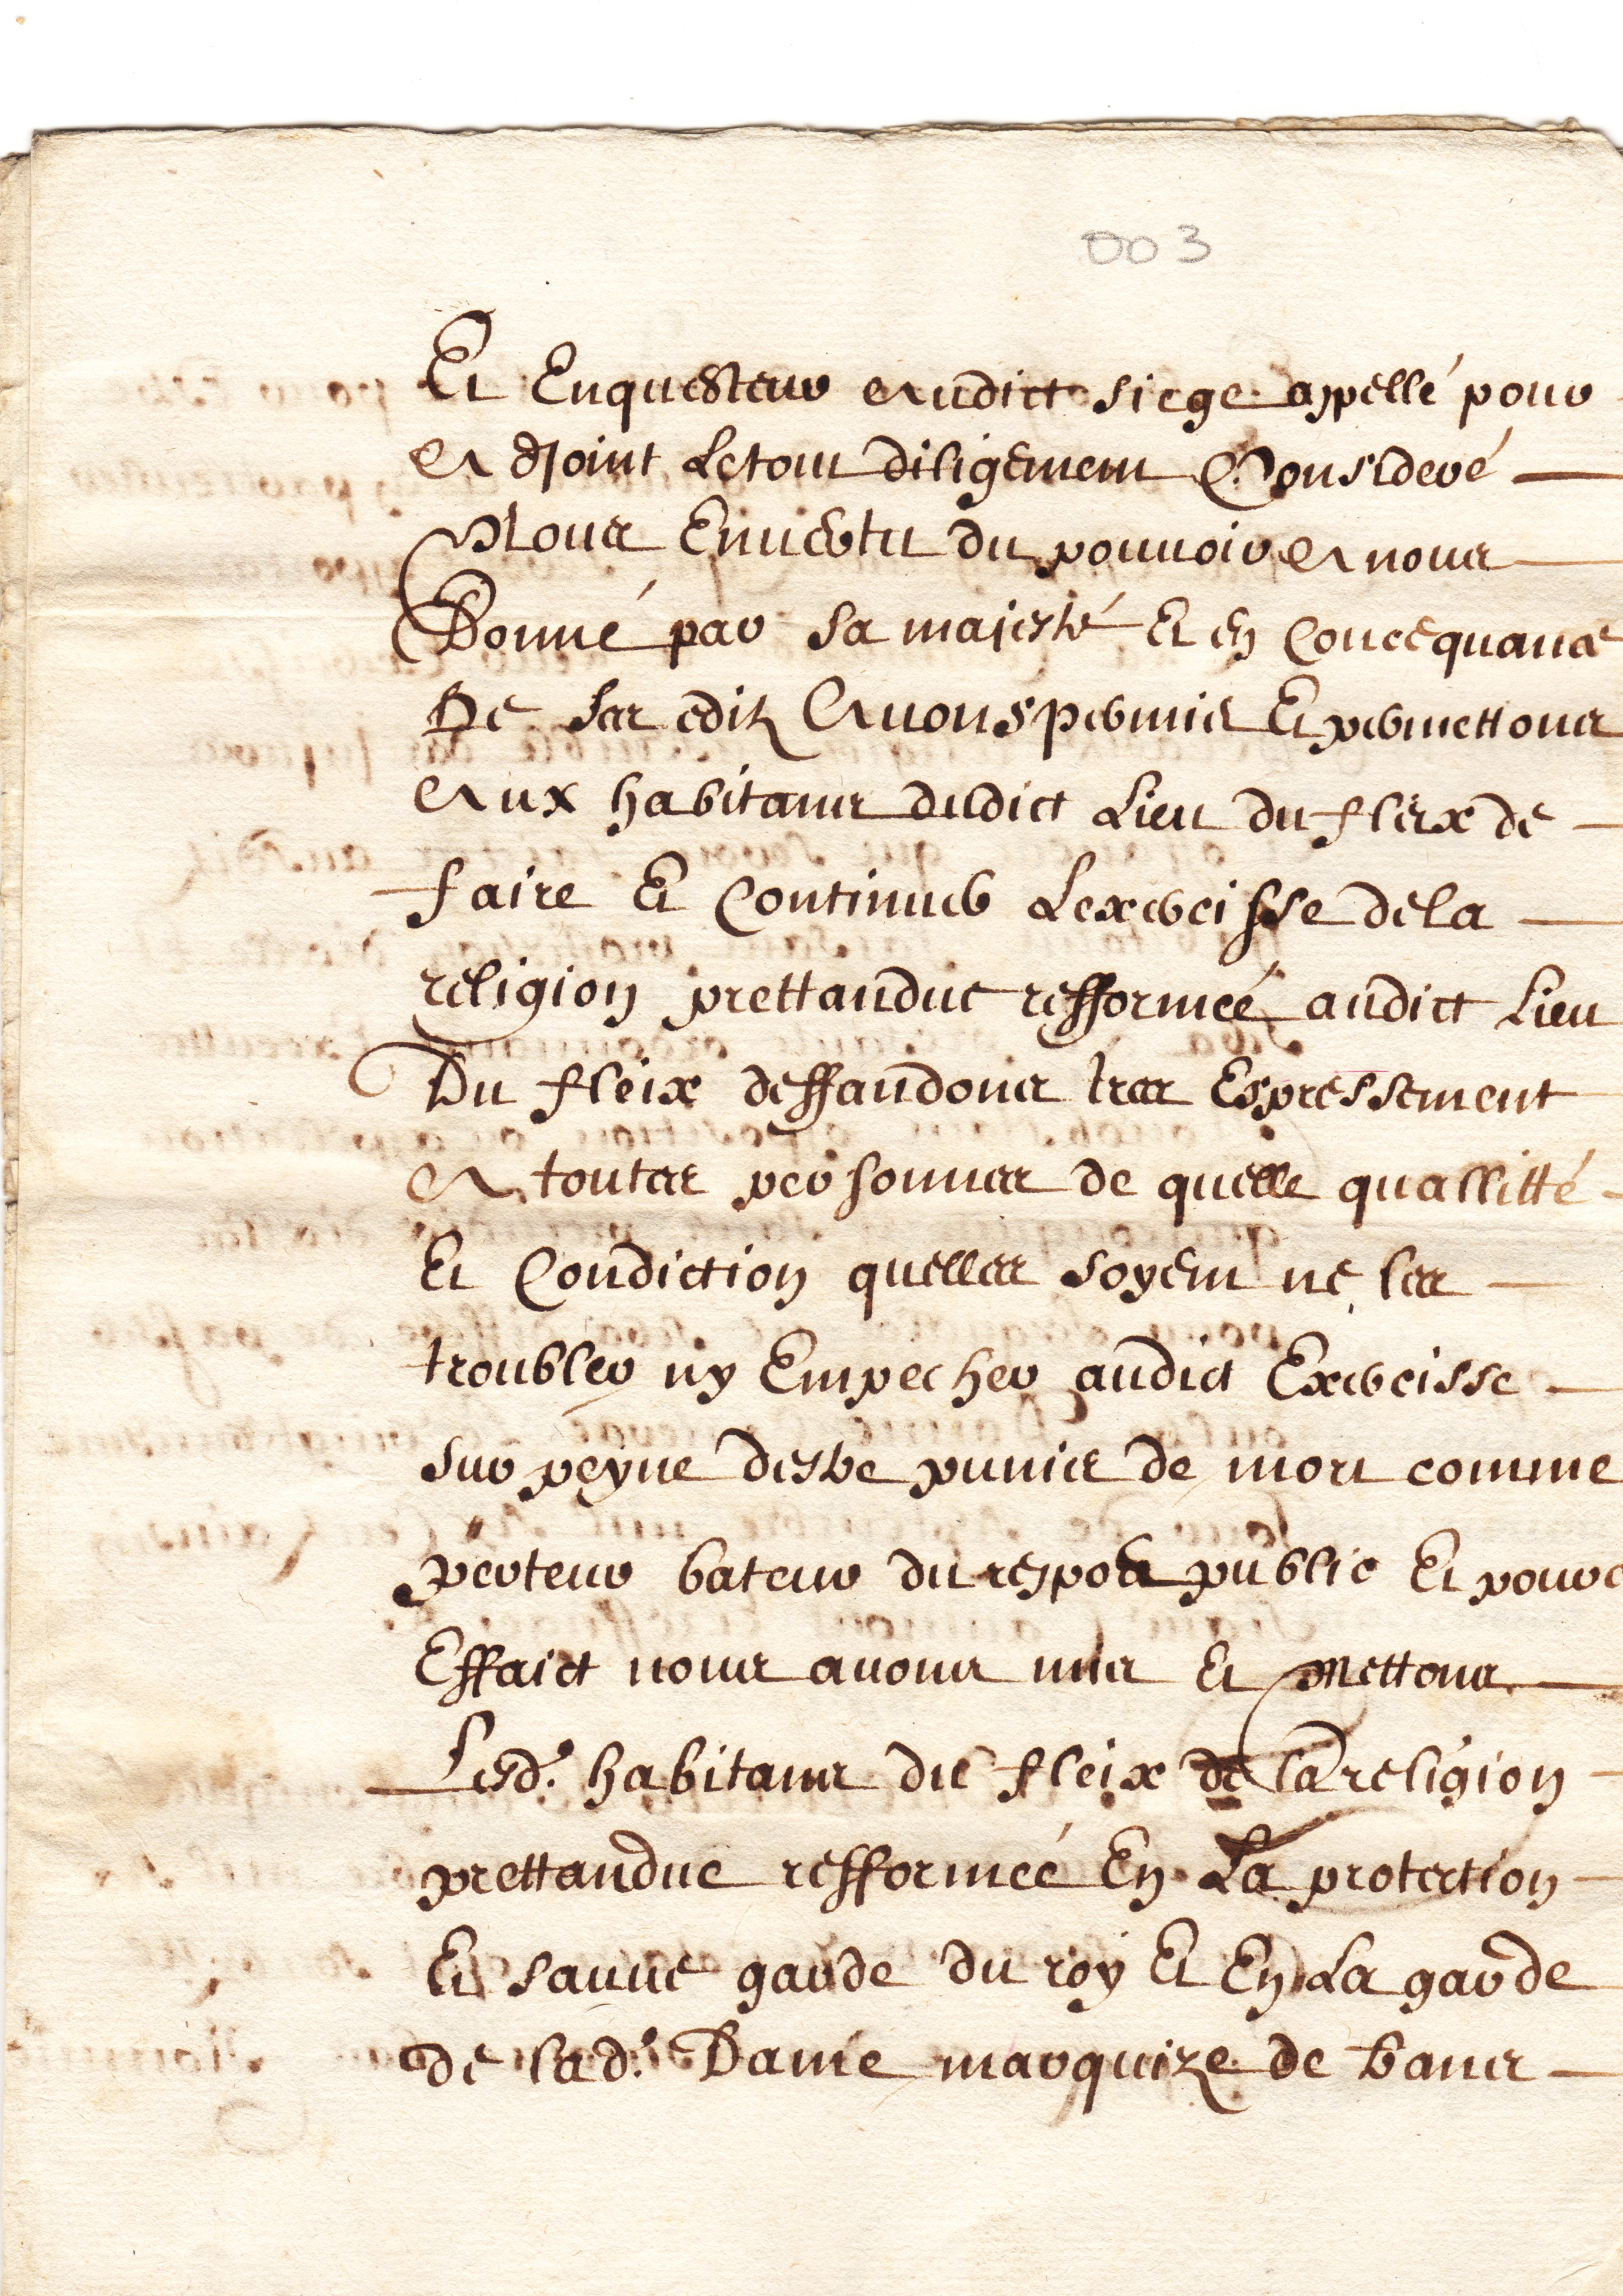 003
Et Enquesteur Audict siege appellé pour
Adjoint Letout diligement Consideré
Nous Envertu du pouvoir A nous
Donné par sa majesté Et en Concequance
De ses editz Avons permis Et permettons
Aux habitans dudict Lieu du fleix de
faire Et Continuer Lexercisse dela
religion prettandue refformée audict Lieu
Du fleix deffandons tres Expressement
A toutes personnes de quelle quallitté
Et Condiction quelles soyent ne les
troubler ny Empecher audict Exercisse
sur peyne destre punis de mort comme
perteur bateur du repos public Et pour c
Effaict nous avons mis Et mettons
Lesd. habitans du fleix de la religion
prettandue refformée En La protection
Et sauve garde du roy Et En La garde
de lad. Dame marquize de trans